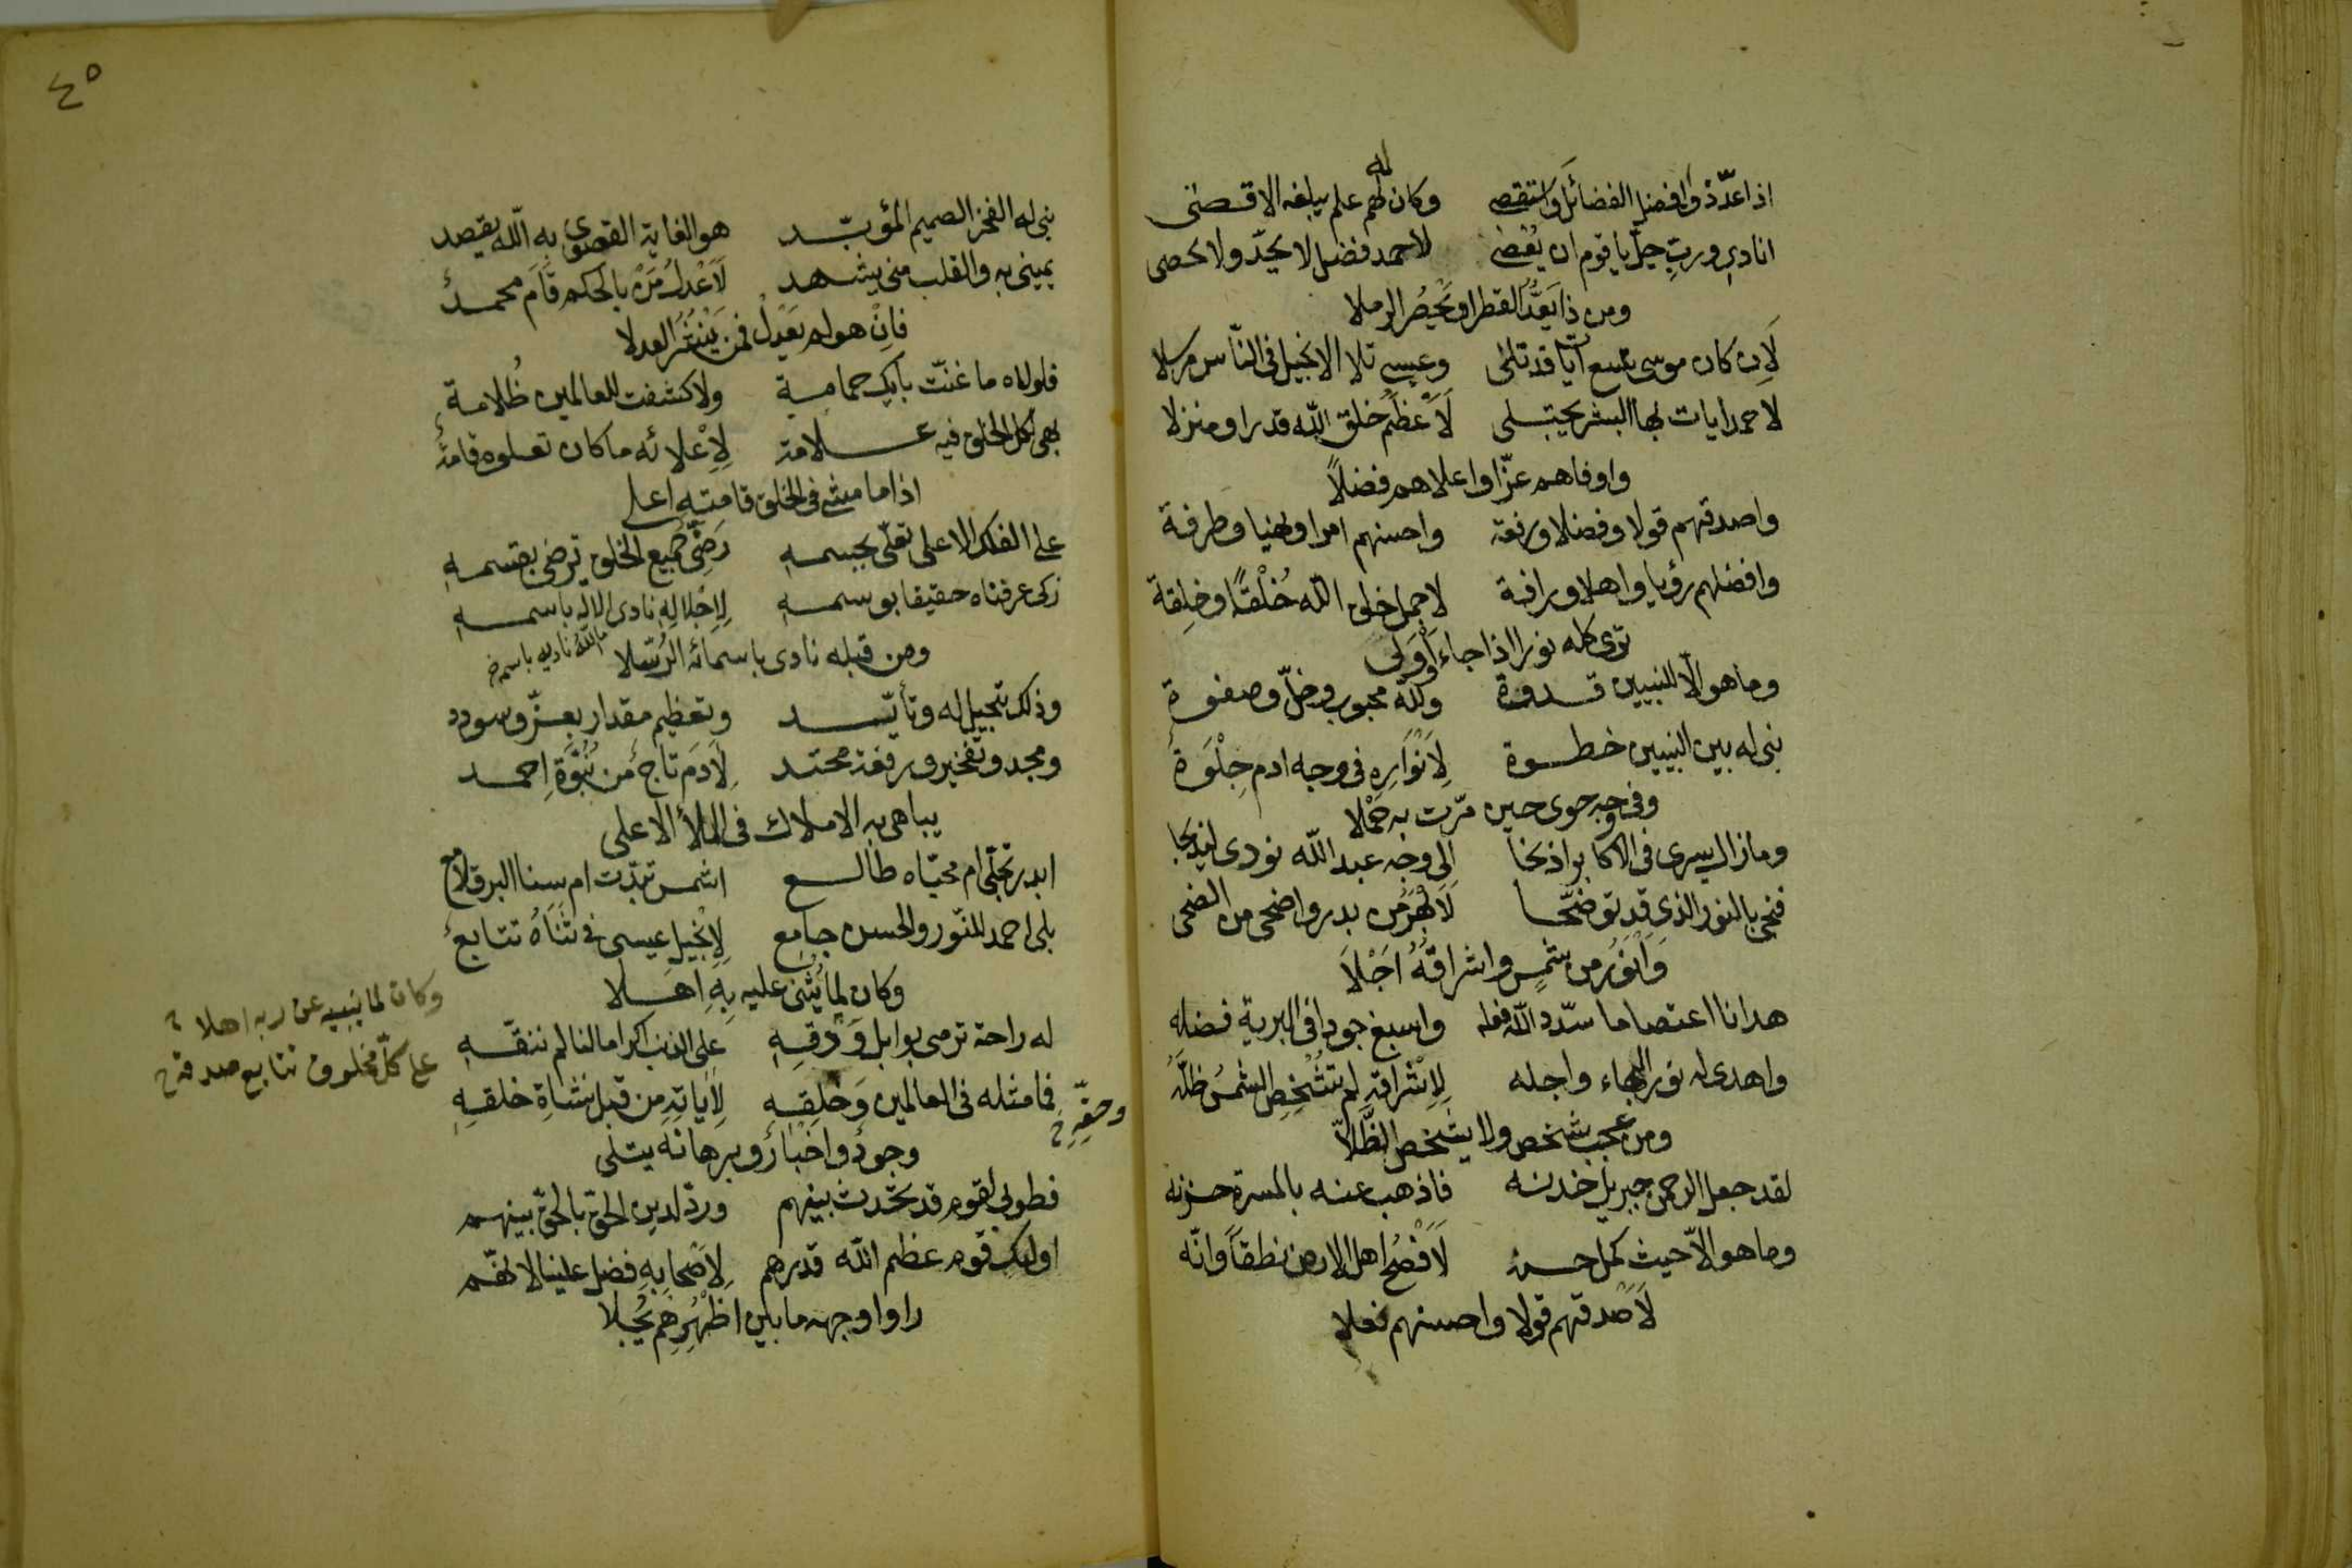 اذا عدّ ذو افضل الفضائل واستقصى وكان لهم علم يبلغه الاقصى
له
انادي ورب جلّ يا قوم ان يُعصى لاحمد فضل لا يحدّ ولا يحصى
ومن ذا يَعدّ القطر او يُحصِر الرملا
لَاِن كان موسى تسع آيات قد تلى وعيسى تلا الانجيل في النّاس مرسلا
لاحمد ايات بها البشر يجتلى لَاَعْظَمُ خلق الله قدرا ومنزلا
واوفاهم عزّا واعلاهم فضلاً
واصدقهم قولا وفضلا ورفعة واحسنهم امرا ونهيا وطرفة
وافضلهم رؤيا واهلا ورافة لاجمل خلق الله خُلْقًا وخِلقة
ترى كله نورا اذا جاء اَوْ وَلى
وما هو الّا للنبيين قدوة ولله محبوب وخلّ وصفوة
نبى له بين النبيين خطوة لِاَنْوَارِهِ في وجه ادم جِلْوَةٌ
وفي وجه حوى حين مرّت به حملا
وما زال يسرى في الاكابر اذ نحا الى وجه عبد الله نودى ليذبحا
فنجى بالنور الذي قد توضّحا لَاَبْهَرُ من بدر واضحى من الضحى
وَاَنْوَرُ من شمسٍ واشراقُهُ اَجْلَا
هدانا اعتصاما سدّد الله فعله واسبغ جودا في البرية فضله
واهدى له نور البهاء واجله لِاِشْرَاقِهِ لم تُشْخِصِ الشمسُ ظلَّهُ
ومن عجب شخص ولا يشخص الظِّلّا
لقد جعل الرحمن جبريل خدنه فاذهب عنه بالمسرة حزنه
وما هو الّا حيث كمل حسنه لَاَفْصَحُ اهل الارض نطقاً وانّه
لَاَصْدقهم قولا واحسنهم فعلا
٤٥
نبى له الفخر الصميم المؤبّد هو الغاية القصوى به الله يقصد
يمينى به والقلب منى يشهد لَاَعْدَلُ مَنْ بالحكم قامَ محمدٌ
فاِنْ هو لم يَعْدِلْ فمن يَنْشُرُ العدلا
فلولاه ما غنّت بايك حمامة ولا كشفت للعالمين ظُلامة
بهى لكل الخلق فيه علامة لِاِعْلائه ما كان تعلوه قامةٌ
اذا ما مشى في الخلق قامته اعلى
على الفلك الاعلى تعلّى بجسمه رَضِىٌّ جميع الخلق ترضى بقسمه
زكى عرفناه حقيقا بوسمه لِاِجْلالِهِ نادى الاله باسمه
ومن قبله نادى باسمائه الرُسلا
ما الله ناديه باسمه
وذلك تبجيل له وتأيّد وتعظيم مقدار بعزّ وسودد
ومجد وتفخير ورفعة محتد لِاٰدَمَ تاجٌ من نُبُوَّةِ احمد
يباهى به الاملاك في الملأ الاعلى
ابدر تجلّى ام محيّاه طالع اشمس تبدّت ام سنا البرق لامع
بلى احمد للنّور والحسن جامع لِاِنْجيل عيسى في ثَنَاهُ تتابعٌ
وكان لِمَا يُثْنى عليه بِهِ اَهَلا
وكان لما ينبيه عن ربه اهلا
له راحة ترمى بوابل وَدْقِهِ على الذنب اكراما لنا لم ننقّه
على كلّ مخلوق تتابع صدقه
فما مثله في العالمين وَخَلقِهِ لِاٰيَاتِهِ من قبل نشاةِ خلقه
وحقِّهِ
وجودٌ واخبارٌ وبرهانه يتلى
فطوبى لقوم قد تحدّث بينهم وردّ لدين الحق بالحق بينهم
اولئك قوم عظم الله قدرهم لِاَصْحابِهِ فضل علينا لانّهم
راوا وجهه ما بين اظْهُرِهِم يُجلا